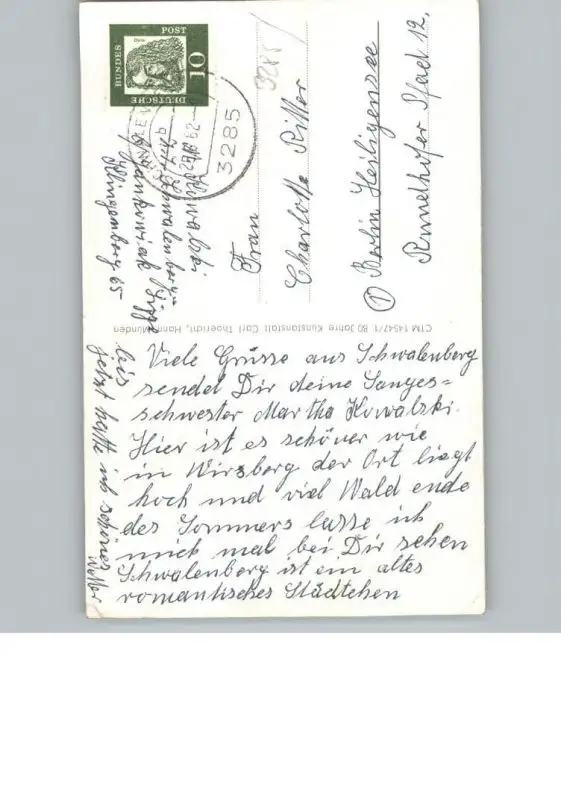 Viele Grüsse aus Schwalenberg
sendet Dir deine Sanges=
schwester Martha Kowalski.
Hier ist es schöner wie
in Wirsberg der Ort liegt
hoch und viel Wald ende
des Sommers lasse ich
mich mal bei Dir sehen
Schwalenberg ist ein altes
romantisches Städtchen
bis
jetzt hatte ich schönes
Wetter
CTM 14547/1 80 Jahre Kunstanstalt Carl Thoericht, Hann. Münden
Kowalski
Schwalenberg
Klingenberg 65
DEUTSCHE
BUNDES
POST
10
3285
3285
Frau
Charlotte Ritter
1 Berlin Heiligensee
Pfad 12,